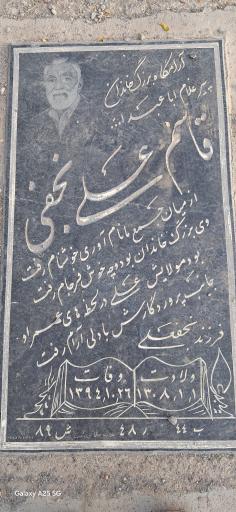 آرامگاه بزرگ خاندان
پیر غلام اباعبداله
قاسمعلی نجفی
از میان جمع ما نام آوری خوشنام رفت
وی بزرگ خاندان بود و چه خوش فرجام رفت
بود مولایش علی در لحظه های همراه
جانب پروردگارش با دلی آرام رفت
فرزند نجفعلی
ولادت ۱۳۰۸.۱.۱
وفات ۱۳۹۴.۱۰.۲۶
ب ۴۴ ر ۴۸ ش ۸۹
Galaxy A25 5G